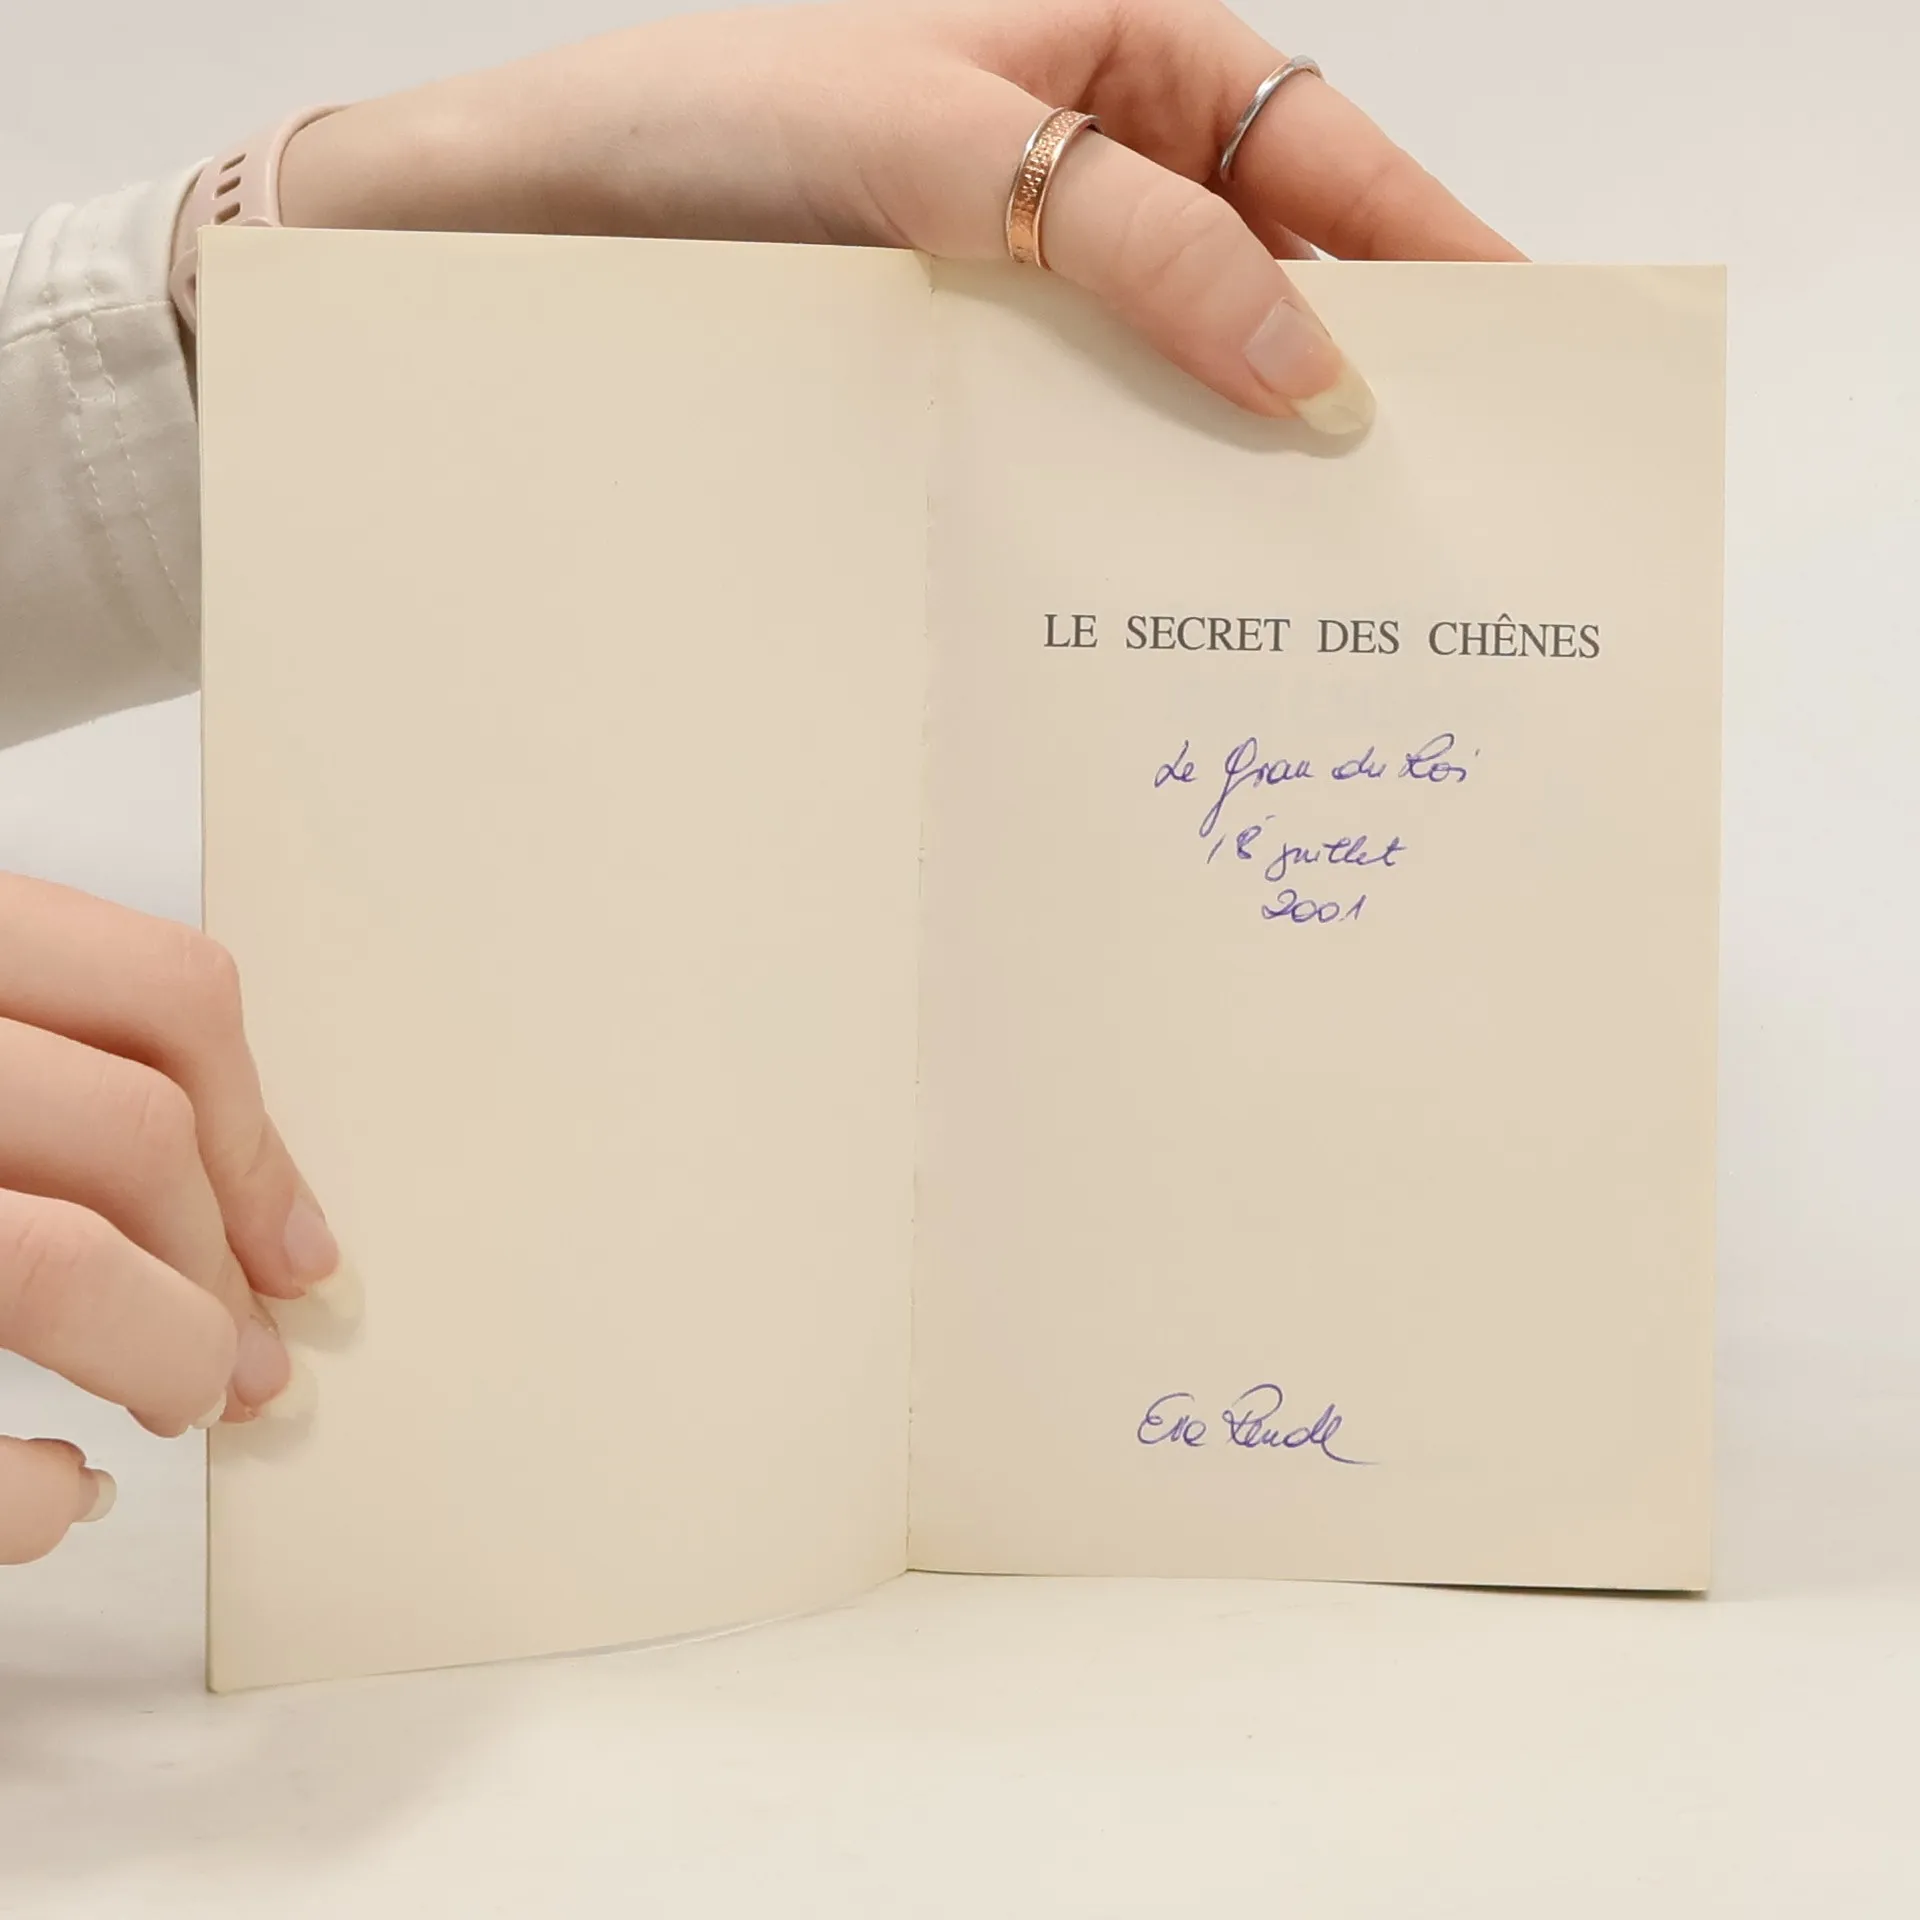 LE SECRET DES CHÊNES
Le Grau du Roi
18 juillet
2001
Eve